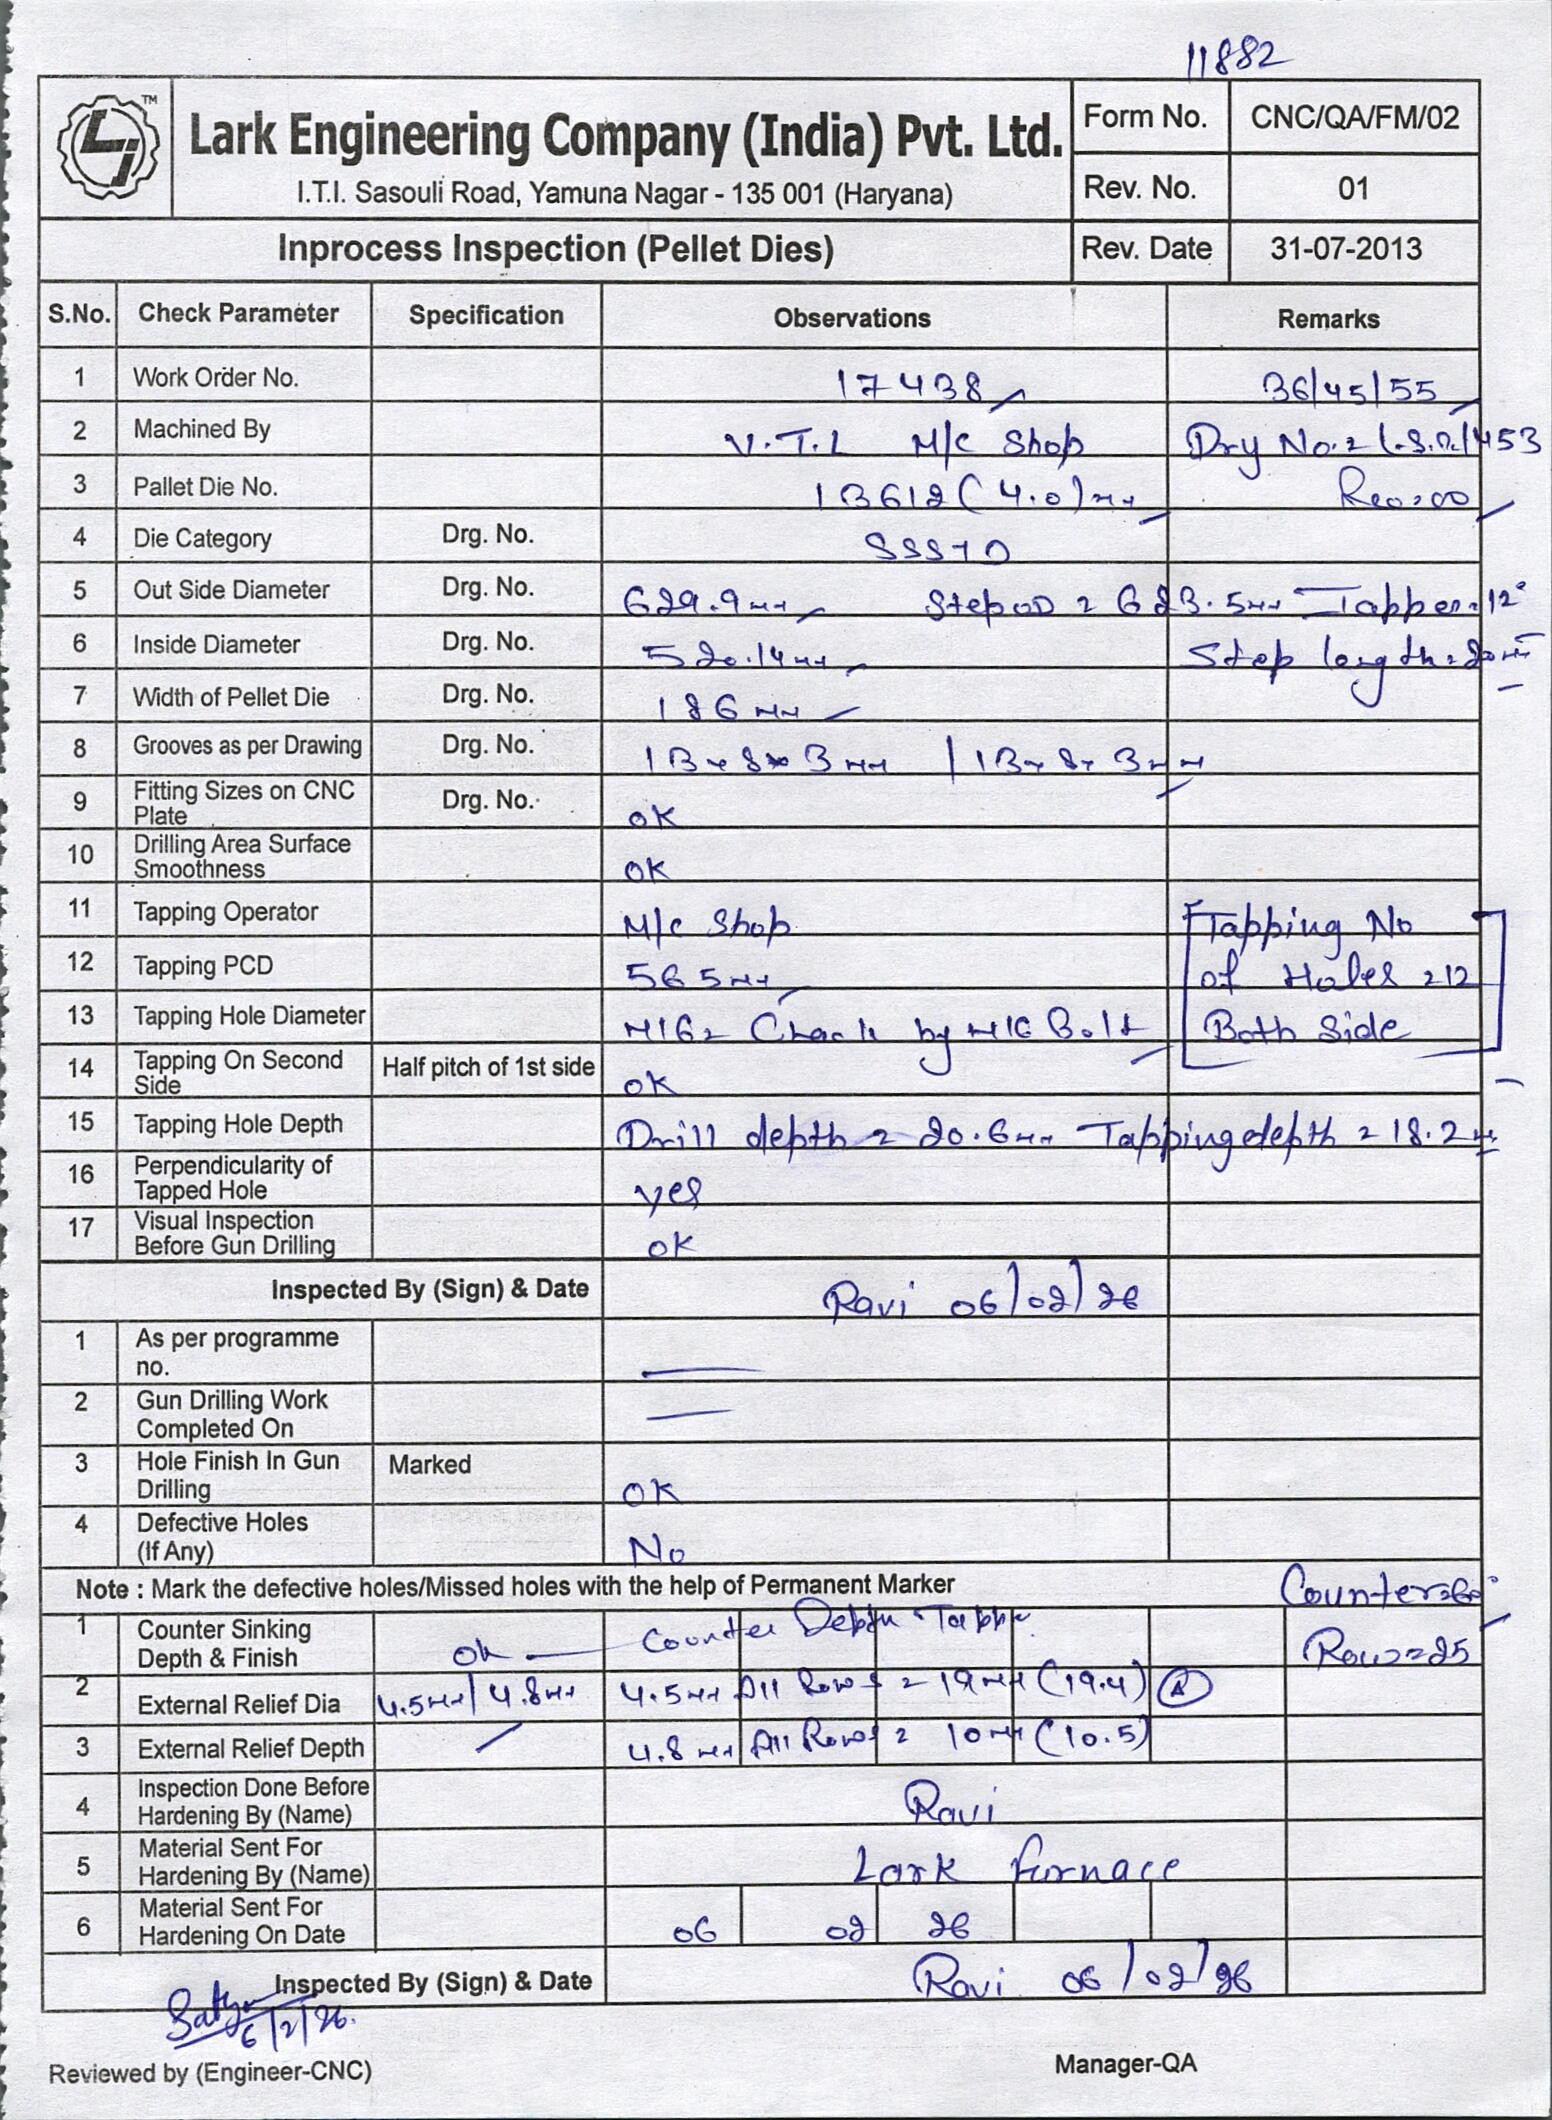 11882
TM
Lark Engineering Company (India) Pvt. Ltd.
I.T.I. Sasouli Road, Yamuna Nagar - 135 001 (Haryana)
Form No. CNC/QA/FM/02
Rev. No. 01
Inprocess Inspection (Pellet Dies) Rev. Date 31-07-2013
S.No. Check Parameter Specification Observations Remarks
1 Work Order No. 17438 36/45/55
2 Machined By V.T.L M/C Shop Dry No. = L.S.D./453
3 Pallet Die No. 13612 (4.0) mm Rev=00
4 Die Category Drg. No. SSSTD
5 Out Side Diameter Drg. No. 629.9mm Step OD = 623.5mm Tapper=12°
6 Inside Diameter Drg. No. 520.14mm Step length=20mm
7 Width of Pellet Die Drg. No. 186mm
8 Grooves as per Drawing Drg. No. 13x8x3mm / 13x8x3mm
9 Fitting Sizes on CNC Plate Drg. No. OK
10 Drilling Area Surface Smoothness OK
11 Tapping Operator M/C Shop Tapping No
12 Tapping PCD 565mm of Holes =12
13 Tapping Hole Diameter M16= Check by M16 Bolt Both Side
14 Tapping On Second Side Half pitch of 1st side OK
15 Tapping Hole Depth Drill depth = 20.6mm Tapping depth = 18.2mm
16 Perpendicularity of Tapped Hole yes
17 Visual Inspection Before Gun Drilling OK
Inspected By (Sign) & Date Ravi 06/02/26
1 As per programme no.
2 Gun Drilling Work Completed On
3 Hole Finish In Gun Drilling Marked OK
4 Defective Holes (If Any) No
Note : Mark the defective holes/Missed holes with the help of Permanent Marker Counter=60°
1 Counter Sinking Depth & Finish OK Counter Depth Rows=25
2 External Relief Dia 4.5mm/4.8mm 4.5mm All Rows = 19mm (19.4) A
3 External Relief Depth 4.8mm All Rows = 10mm (10.5)
4 Inspection Done Before Hardening By (Name) Ravi
5 Material Sent For Hardening By (Name) Lark furnace
6 Material Sent For Hardening On Date 06 02 26
Inspected By (Sign) & Date Ravi 06/02/26
Satya
6/2/26.
Reviewed by (Engineer-CNC) Manager-QA